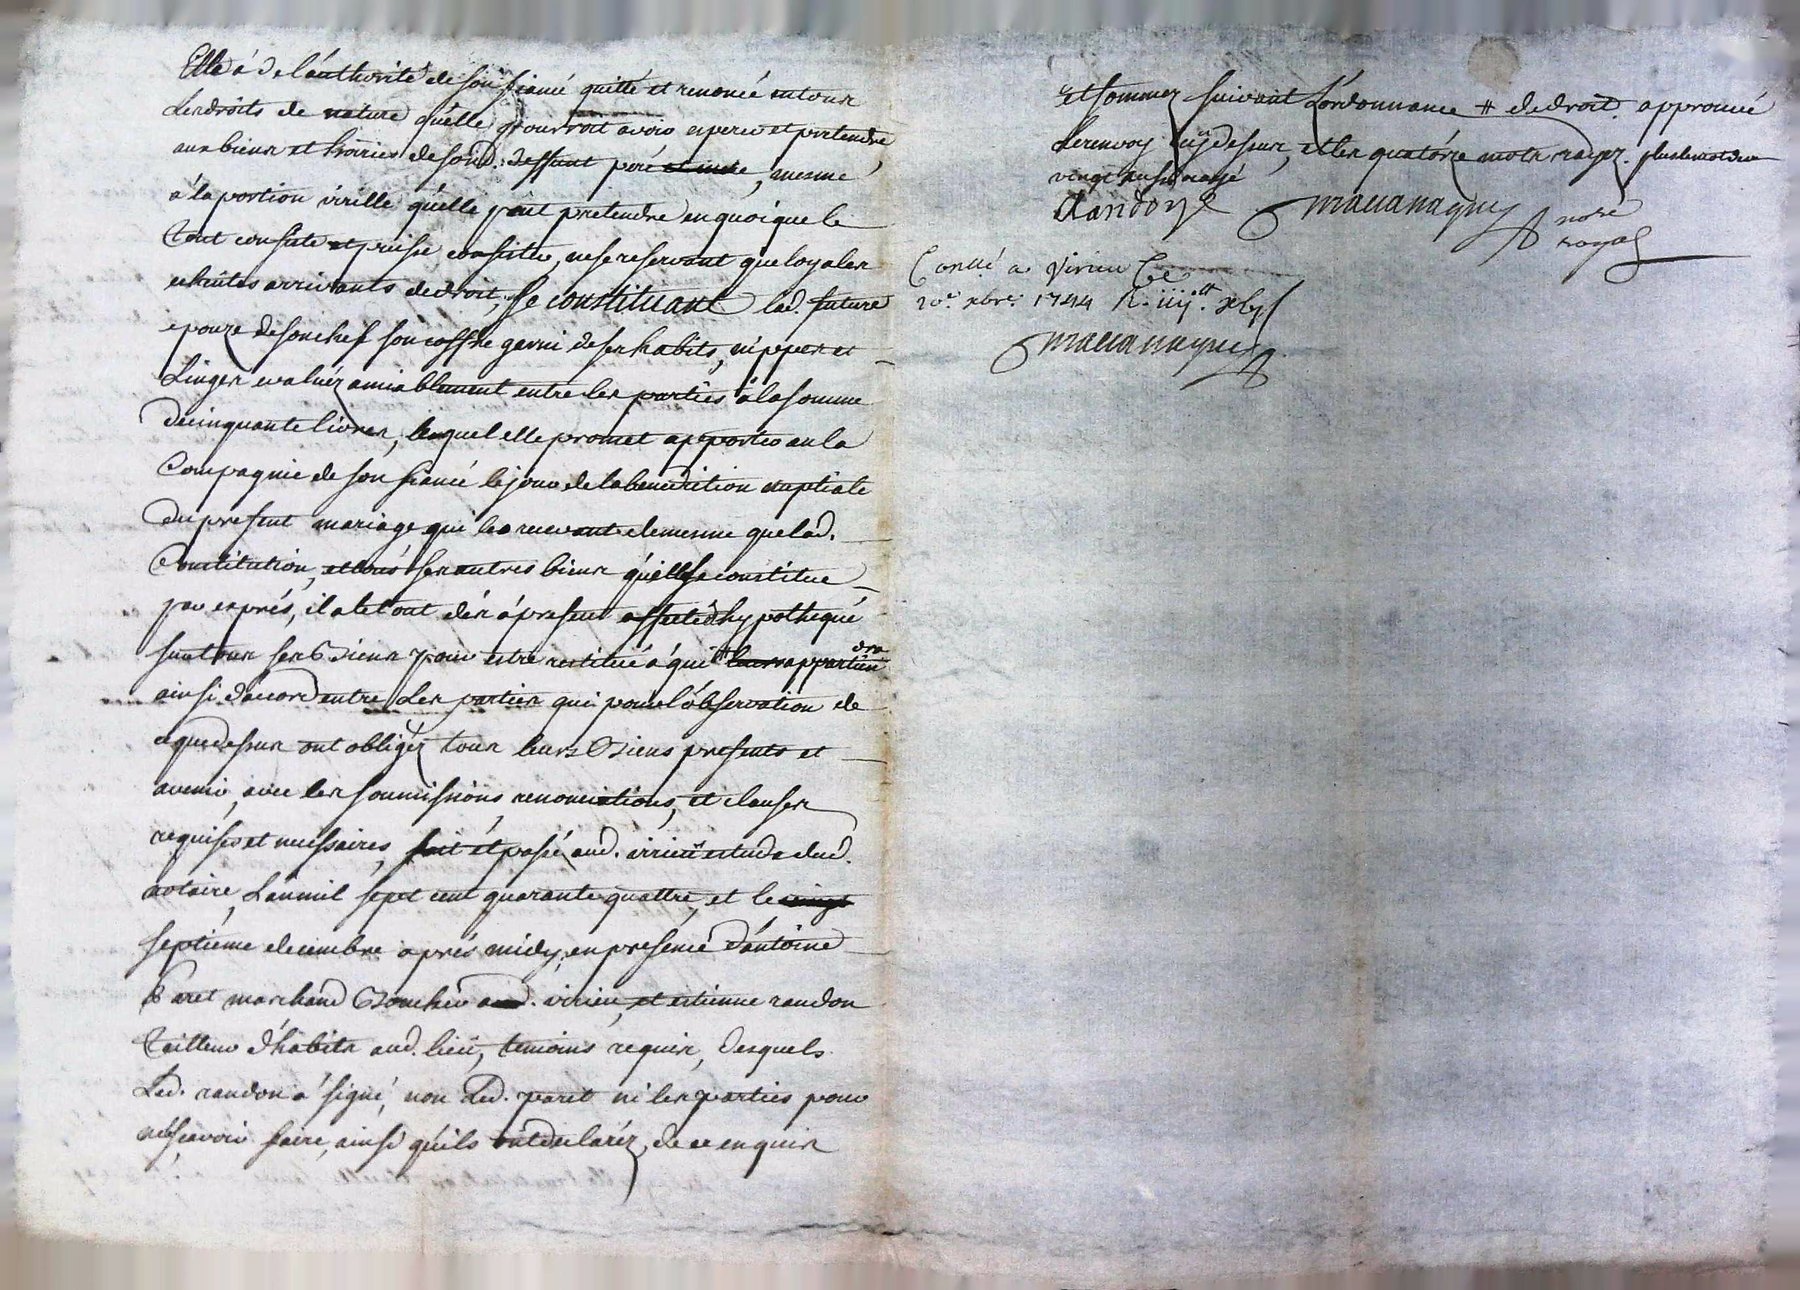 Elle a de l'authorité de son fiancé quitté et renoncé a tous
les droits de nature qu'elle pourroit avoir a perce et pretendre
aux biens et hoiries de sond. deffunt pere et mere, mesme
a la portion virille qu'elle peut pretendre en quoi que le
tout consiste et puisse consister, ne se reservant que loyales
echutes arrivants de droit, se constituant lad. future
epouze de son chef son coffre garni de ses habits, nippes et
linges evaluéz amiablement entre les parties a la somme
de cinquante livres, lequel elle promet apporter en la
Compagnie de son fiancé le jour de la benedition nuptiale
du present mariage qui les recevant de mesme que lad.
Constitution, et tous ses autres biens qu'elle se constitue
par exprés, il a le tout dés a present affecté d'hypothequé
sur tous ses Biens pour estre restitué a qui # leurs appartiendra
ainsi d'accord entre les parties qui pour l'observation de
ce que dessus ont obligéz tous leurs Biens presents et
avenir, avec les soumissions, renonciations, et clauses
requises et necessaires, fait et passé aud. virieu estude dud.
notaire, L'an mil sept cent quarante quattre, et le vingt
septiéme decembre aprés midy, en presence d'antoine
Paret marchand Boucher aud. virieu, et estienne randon
tailleur d'habits aud. lieu, temoins requis, desquels
Led. randon a signé, non Led. paret ni les parties pour
ne sçavoir faire, ainsi qu'ils ont declaréz, de ce enquis
Et sommez suivant L'ordonnance # de droit. approuvé
le renvoy cy dessus, et les quatorze mots rayez. plus le mot de
vingt aussi rayé
Randon
nore
royal
Conllé a Virieu Ce
xbre 1744 R.